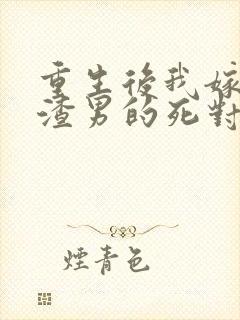 重生後我嫁
渣男的死對
煙青色